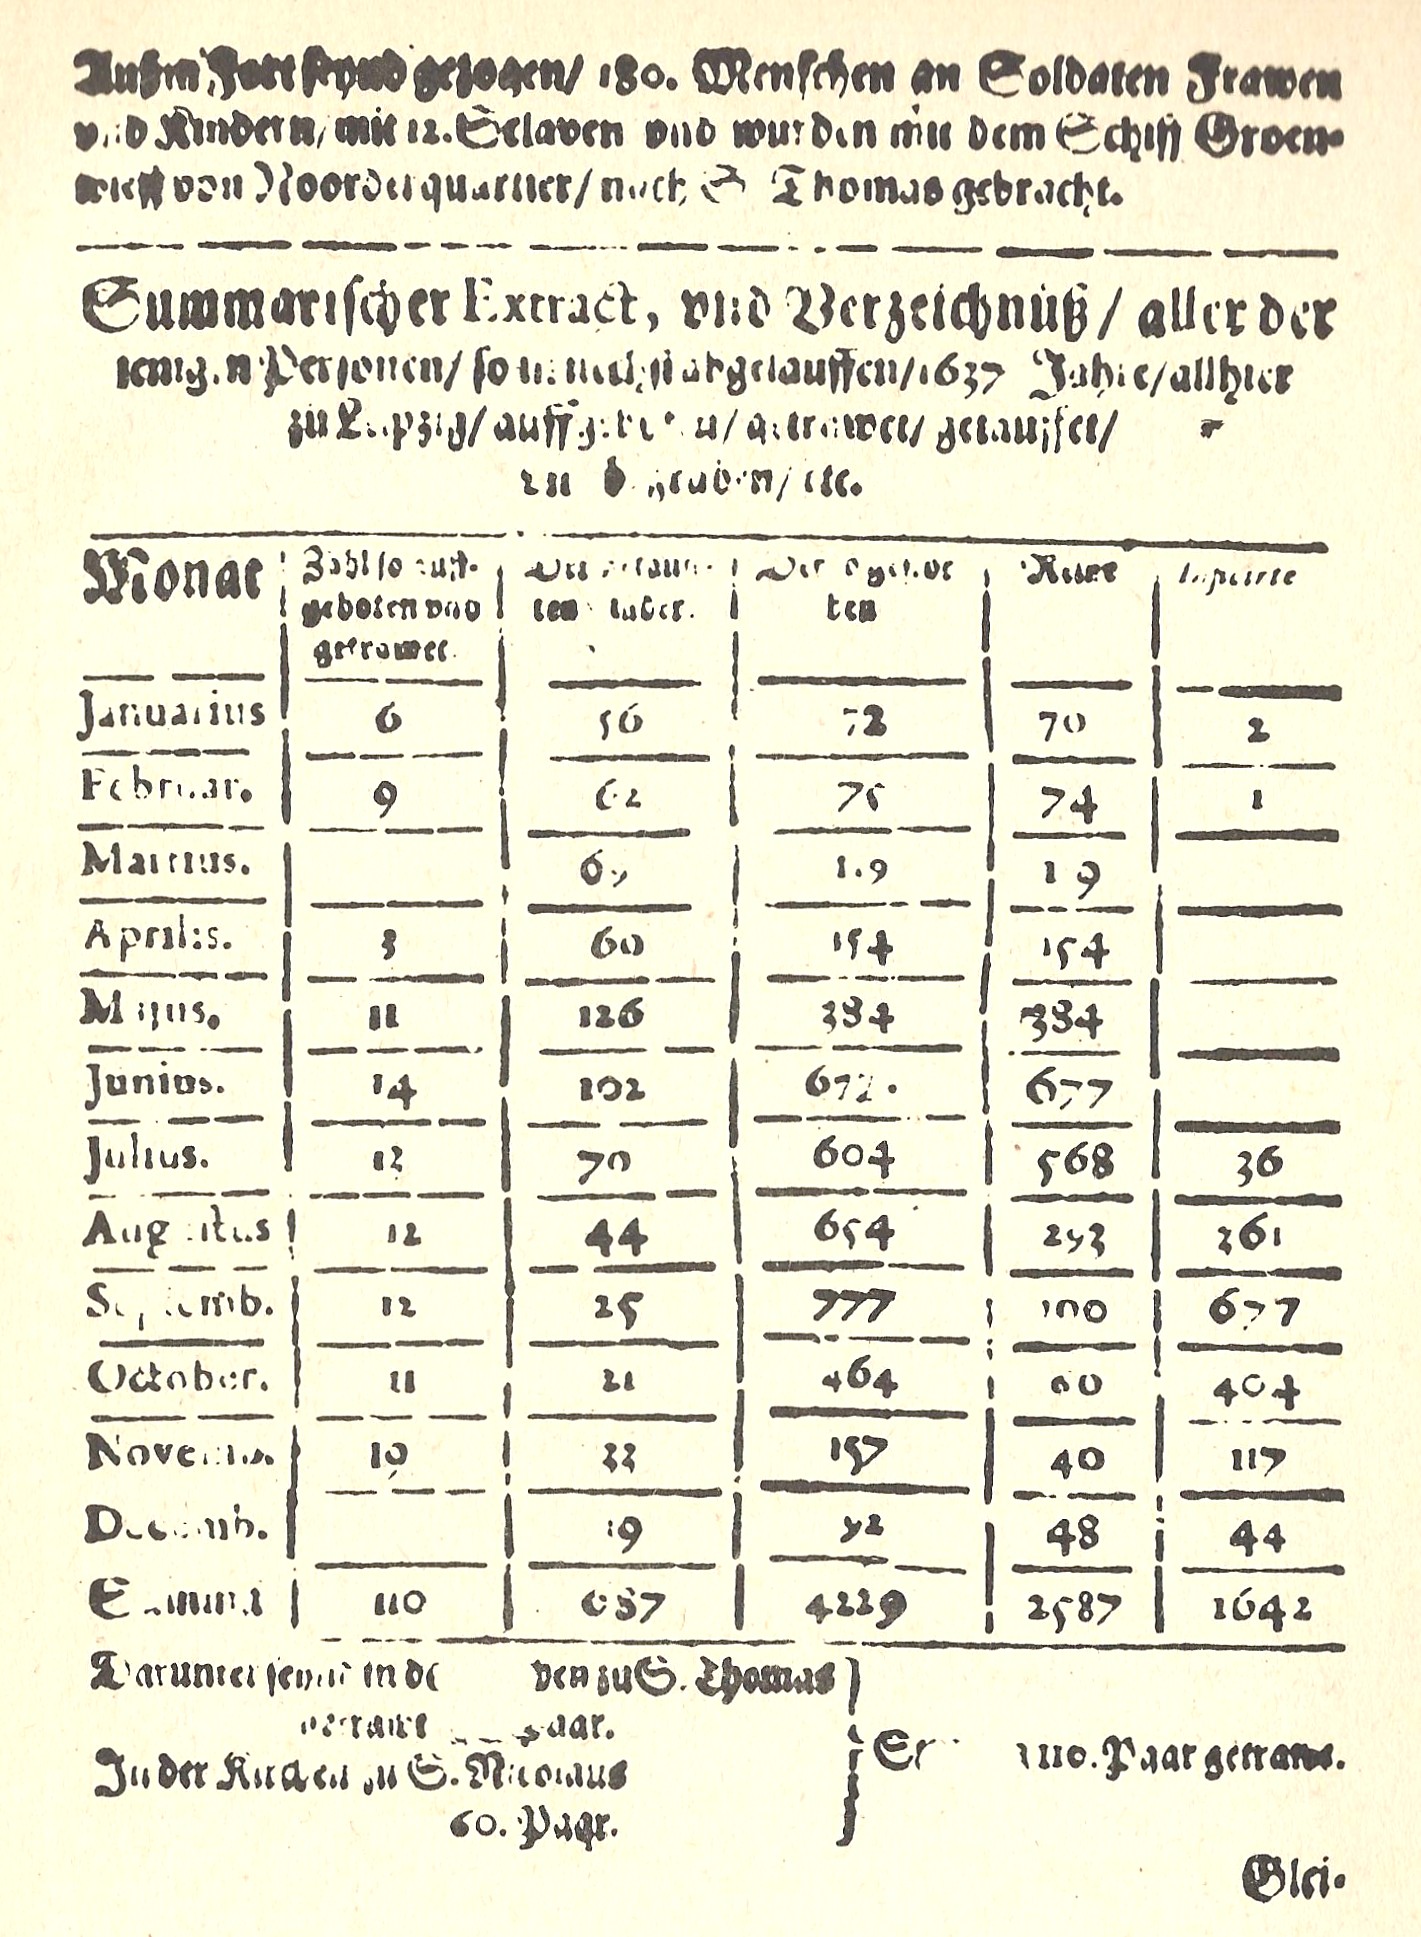 gezogen/ 180. Menschen an Soldaten Frawen
vnd Kindern/ mit 12. Sclaven vnd wurden mit dem Schiff Groen-
von Noorderquartier/ nach S. Thomas gebracht.
Summarischer Extract, vnd Verzeichnüß/ aller der
jenigen Personen/ so abgelauffen/ 1637 Jahre/ allhier
zu Leipzig/ getrawet/ getauffet/
zu begraben/ etc.
Monat Zahl so auff- Der getauff- Der Reine Inficirte
geboten vnd ten Kinder. ten
getrawet.
Januarius 6 56 72 70 2
Februar. 9 62 75 74 1
Martius.
Aprilis. 3 60 154 154
Majus. 11 126 384 384
Junius. 14 102 677. 677
Julius. 12 70 604 568 36
Augustus 12 44 654 293 361
Septemb. 12 25 777 100 677
October. 11 21 464 60 404
Novemb. 10 33 157 40 117
Decemb. 19 92 48 44
Summa 110 687 4229 2587 1642
Darunter seynd in zu S. Thomas
getrawt Paar.
In der Kirchen zu S. Nicolaus
60. Paar.
110. Paar getrawt.
Glei-